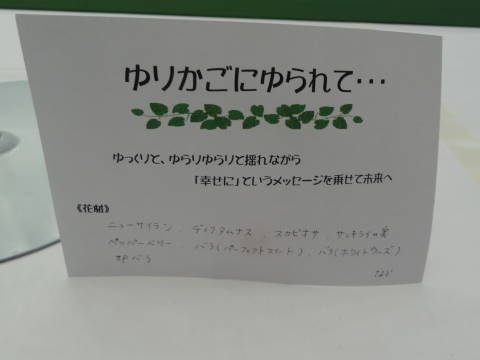 ゆりかごにゆられて…
ゆっくりと、ゆらりゆらりと揺れながら
「幸せに」というメッセージを乗せて未来へ
《花材》
ニューサイラン、ディクタムナス、スカビオサ、サンキライの実
ペッパーベリー、バラ(パーフェクトスイート)、バラ(ホワイトウィズ)
バラ
など